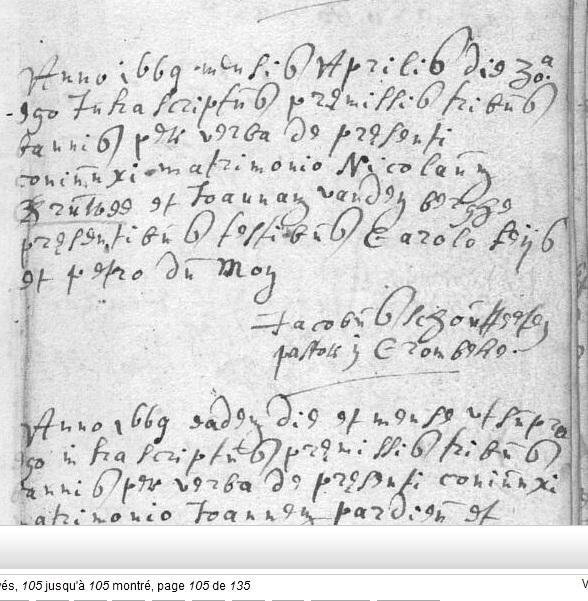 Anno 1669 mensis Aprilis die 30.a
ego Infrascriptus premissis tribus
bannis per verba de presenti
coniunxi matrimonio Nicolaum
et Joannam vanden berghe
presentibus testibus Carolo
et petro du Moy
Jacobus
pastor Crombeke.
Anno 1669 eadem die et mense ut supra
ego infrascriptus premissis tribus
bannis per verba de presenti coniunxi
matrimonio Joannem et
vés, 105 jusqu'à 105 montré, page 105 de 135
V